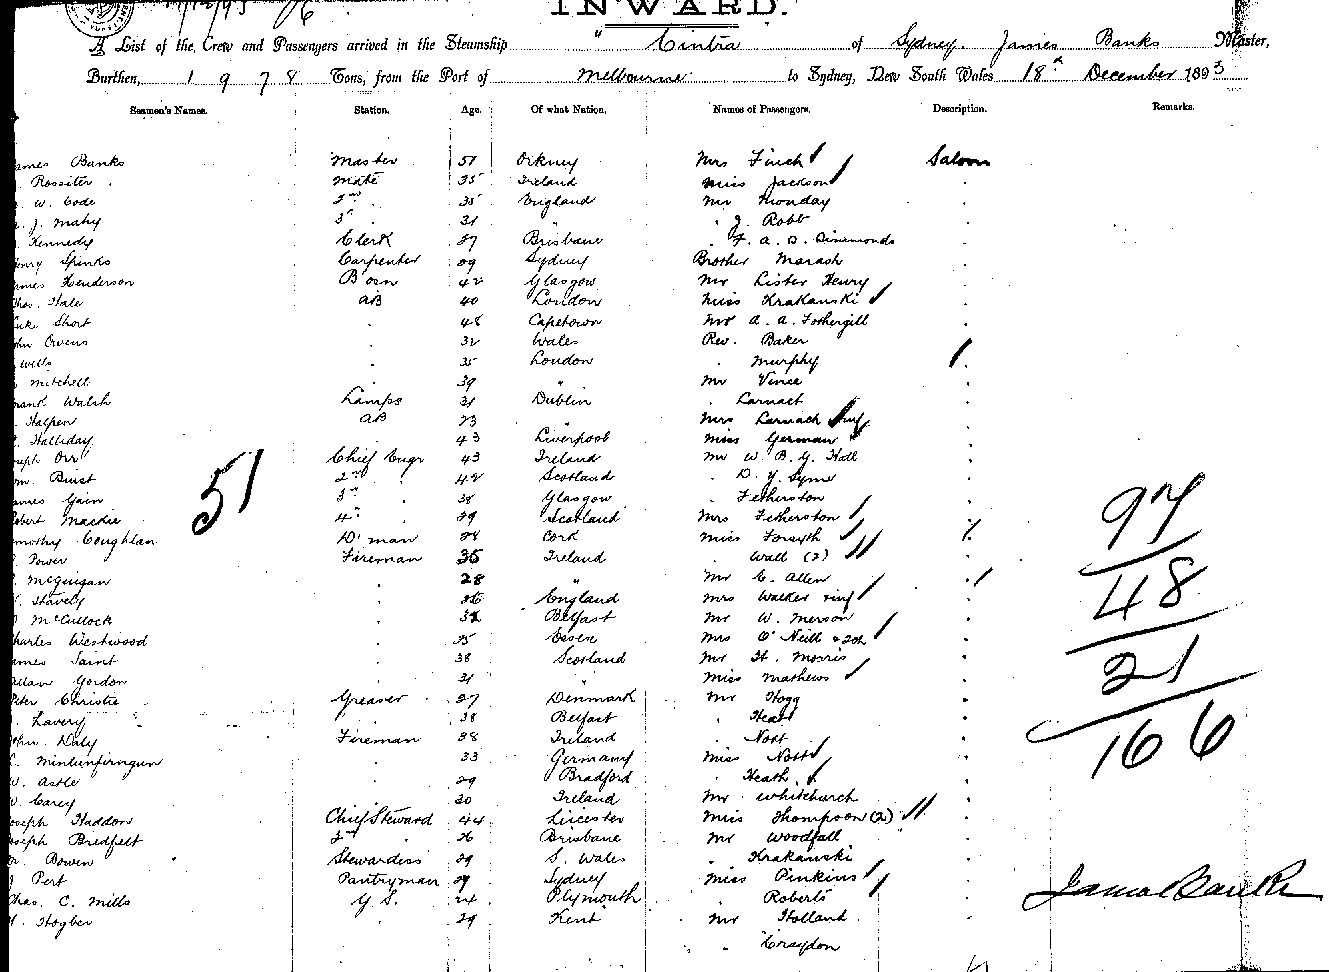 INWARD.
A List of the Crew and Passengers arrived in the Steamship "Cintra of Sydney. James Banks Master,
Burthen, 1978 Tons, from the Port of Melbourne to Sydney, New South Wales 18th December 1893
Seamen's Names. Station. Age. Of what Nation. Names of Passengers. Description. Remarks.
ames Banks Master 51 Orkney Mrs Finch Saloon
Rossiter Mate 35 Ireland Miss Jackson
W. Code 2nd 35 England Mr Munday
J. Mahy 3rd 31 " J. Robb
Kennedy Clerk 27 Brisbane F. A. D. Simmonds
enry Spinks Carpenter 29 Sydney Brother Marash
ames Henderson Bosn 42 Glasgow Mr Lister Henry
has. Hale AB 40 London Miss Krakauski
uke Short . 48 Capetown Mr A. A. Fothergill
ohn Owens . 32 Wales Rev. Baker
Wells . 35 London . Murphy
Mitchell . 39 " Mr Vince
rank Walsh Lamps 31 Dublin . Larnach
Halpen AB 23 " Mrs Larnach inf
Halliday . 43 Liverpool Miss German
oseph Orr Chief Engr 43 Ireland Mr W. B. G. Hall
m. Buist 2nd 42 Scotland . D. Y. Syme
ames Gain 3rd 38 Glasgow . Fetherston
obert Mackie 4th 29 Scotland Mrs Fetherston
51
imothy Coughlan D'man 28 Cork Miss Forsyth
Power Fireman 35 Ireland . Wall (2)
McGuigan . 28 " Mr C. Allen
Stavely . 26 England Mrs Walker inf
McCullock . 32 Belfast Mr W. Merson
harles Westwood . 35 Essex Mrs O'Neill & 2ch
ames Saint . 38 Scotland Mr H. Morris
allan Gordon . 21 " Miss Mathews
Peter Christie Greaser 27 Denmark Mr Hogg
Lavery . 38 Belfast . Heath
ohn Daly Fireman 28 Ireland . Nott
. 33 Germany Miss Nott
W. Astle . 29 Bradford . Heath
W. Carey . 30 Ireland Mr Whitchurch
oseph Haddon Chief Steward 44 Leicester Miss Thompson (2)
oseph Bredfelt 2nd 26 Brisbane Mr Woodfall
Bowen Stewardess 29 S. Wales . Krakauski
J Pert Pantryman 29 Sydney Miss Pinkins
has. C. Mills G. S. 24 Plymouth . Roberts
H. Hogben . 29 Kent Mr Holland
" Craydon
97
48
21
166
James Banks